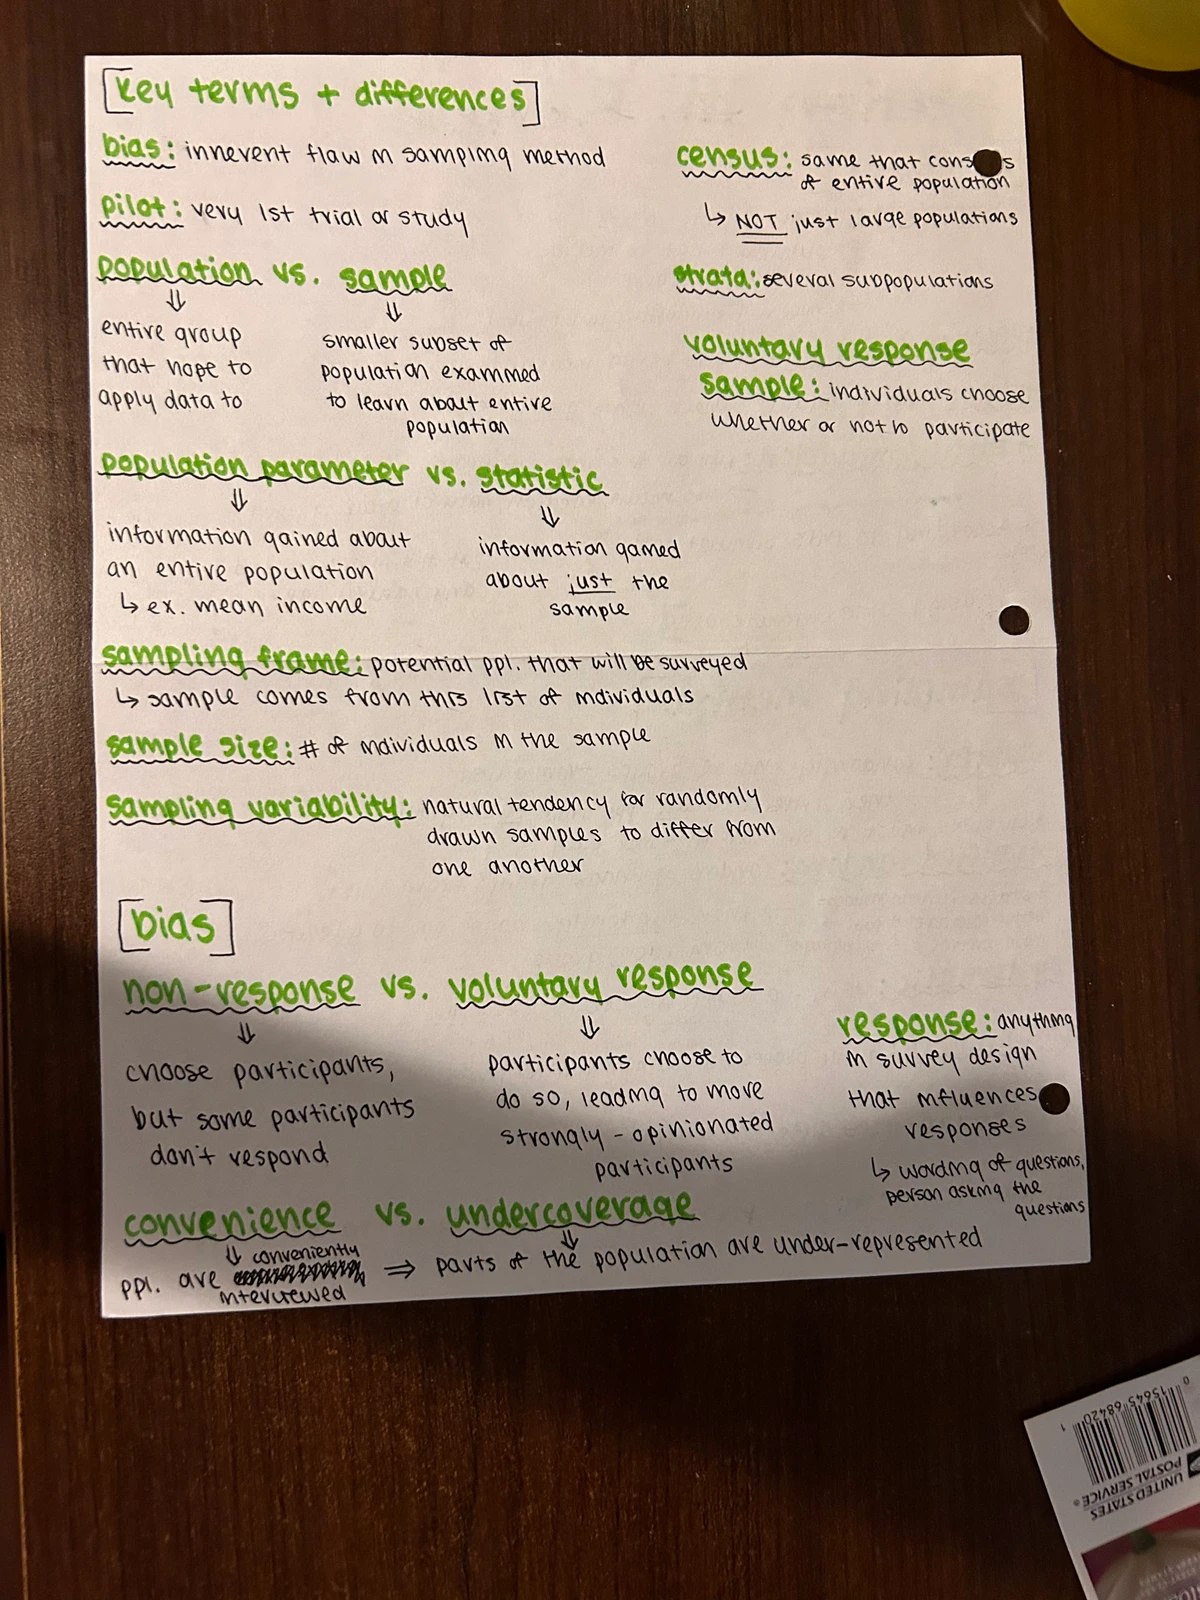 [key terms + differences]
bias: innevent flaw in sampling method
pilot: very 1st trial or study
population vs. sample
⇓ ⇓
entire group
that hope to
apply data to
smaller subset of
population examined
to learn about entire
population
population parameter vs. statistic
⇓ ⇓
information gained about
an entire population
↳ ex. mean income
information gained
about just the
sample
census: same that cons s
of entire population
↳ NOT just large populations
strata: several subpopulations
voluntary response
sample: individuals choose
whether or not to participate
sampling frame: potential ppl. that will be surveyed
↳ sample comes from this list of individuals
sample size: # of individuals in the sample
sampling variability: natural tendency for randomly
drawn samples to differ from
one another
[bias]
non-response vs. voluntary response
⇓ ⇓
choose participants,
but some participants
don't respond
participants choose to
do so, leading to more
strongly-opinionated
participants
response: anything
in survey design
that influences
responses
↳ wording of questions,
person asking the
questions
convenience vs. undercoverage
⇓ conveniently ⇓
ppl. are ⇒ parts of the population are under-represented
interviewed
UNITED STATES
POSTAL SERVICE®
0 15645 68420 1